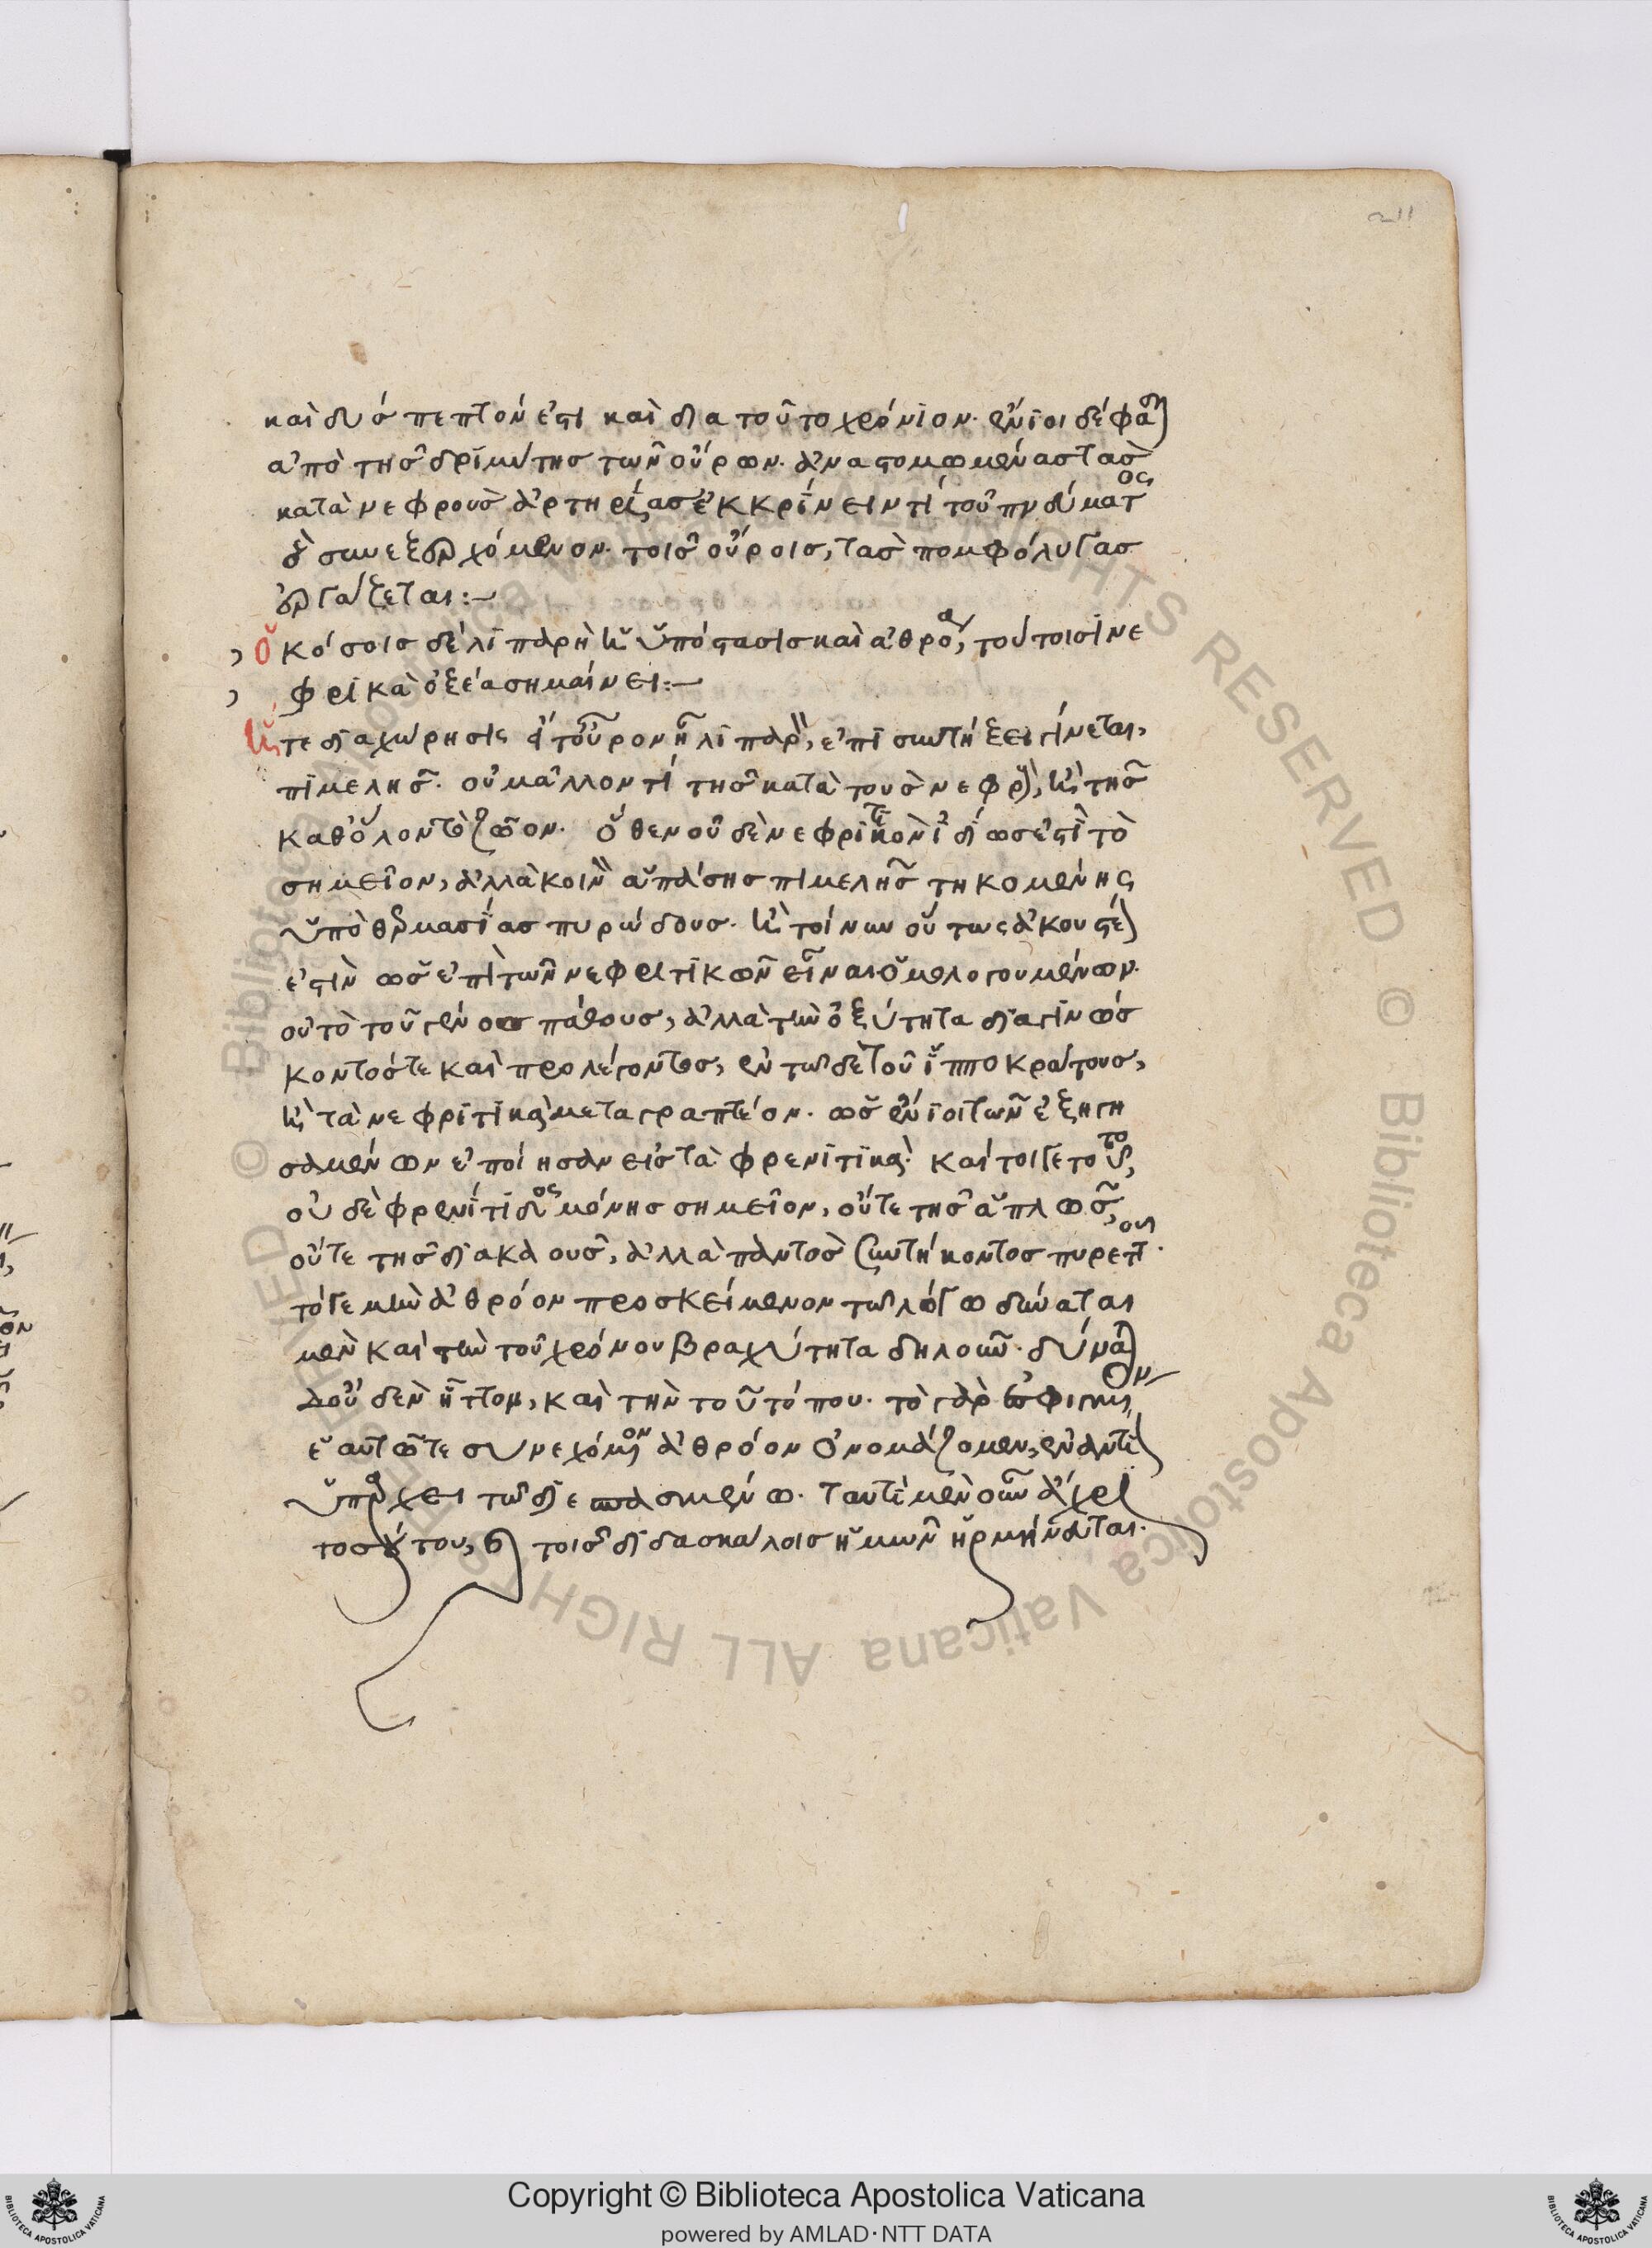 211
καὶ δύσπεπτόν ἐστι καὶ διὰ τοῦτο χρόνιον. ἔνιοι δέ φασιν
ἀπὸ τῆς δριμύτης τῶν οὔρων. ἀναστομωμένας τὰς
κατὰ νεφροὺς ἀρτηρίας ἐκκρίνειν τί τοῦ πνεύματος
ὃ συνεξερχόμενον. τοῖς οὔροις, τὰς πομφόλυγας
ἐργάζεται:
Ὁκόσοις δὲ λιπαρὴ καὶ ὑπόστασις καὶ ἀθρόα, τούτοισι νε
φρικὰ ὀξέα σημαίνει:
Καί τε διαχώρησις ἢ τοὖρον ᾖ λιπαρὸν, ἐπὶ συντήξει γίνεται,
πιμελῆς. οὐ μᾶλλον τί τῆς κατὰ τοὺς νεφροὺς, καὶ τῆς
καθ' ὅλον τὸ ζῶον. ὅθεν οὐδὲ νεφριτικὸν ἰδίως ἐστὶ τὸ
σημεῖον, ἀλλὰ κοινὸν ἁπάσης πιμελῆς τηκομένης
ὑπὸ θερμασίας πυρώδους. καὶ τοίνυν οὕτως ἀκουστέον
ἐστὶν ὡς ἐπὶ τῶν νεφριτικῶν εἶναι ὁμολογουμένων.
οὐ τὸ τοῦ γένους πάθους, ἀλλὰ τὴν ὀξύτητα διαγινώσ
κοντός τε καὶ προλέγοντος, ἐν τῶ δὲ τοῦ ἱπποκράτους,
καὶ τὰ νεφριτικὰ μεταγραπτέον. ὡς ἔνιοι τῶν ἐξηγη
σαμένων ἐποίησαν εἰς τὰ φρενιτικά. καίτοι γε τοῦτο,
οὐδὲ φρενίτιδος μόνης σημεῖον, οὔτε τῆς ἁπλῶς,
οὔτε τῆς διακαοῦς, ἀλλὰ παντὸς συντήκοντος πυρετοῦ.
τό γε μὴν ἀθρόον προσκείμενον τῶ λόγω δύναται
μὲν καὶ τὴν τοῦ χρόνου βραχύτητα δηλοῦν. δύναται
δ' οὐδὲν ἧττον, καὶ τὴν τοῦ τόπου. τὸ γὰρ
ἑαυτῶ τε συνεχόμενον ἀθρόον ὀνομάζομεν,
ὑπάρχει τῶ διεσπασμένω. ταυτὶ μὲν οὖν ἄχρι
τοσούτου, τοῖς διδασκάλοις ἡμῶν ἡρμήνευται.
Copyright © Biblioteca Apostolica Vaticana
powered by AMLAD·NTT DATA